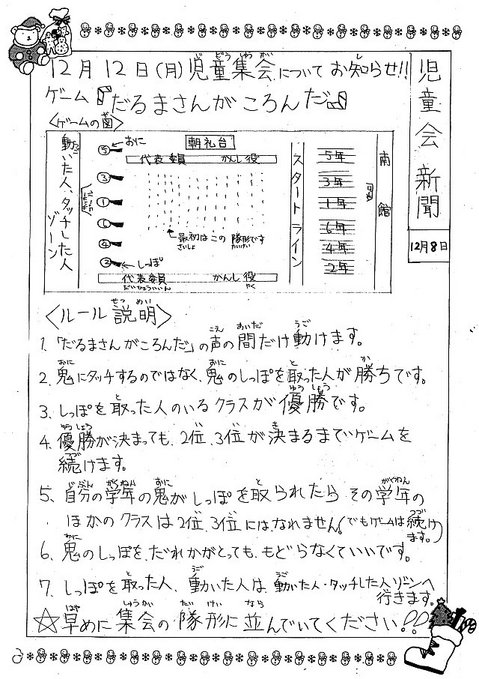 児童会新聞
12月8日
12月12日(月)児童集会についてお知らせ!!
ゲーム『だるまさんがころんだ』
〈ゲームの図〉
動いた人、タッチした人ゾーン
⑤ おに
③
①
⑥
④
② しっぽ
朝礼台
代表委員 かんし役
最初はこの隊形です
代表委員 かんし役
スタートライン
5年
3年
1年
6年
4年
2年
南館
〈ルール説明〉
1. 「だるまさんがころんだ」の声の間だけ動けます。
2. 鬼にタッチするのではなく、鬼のしっぽを取った人が勝ちです。
3. しっぽを取った人のいるクラスが優勝です。
4. 優勝が決まっても、2位、3位が決まるまでゲームを
続けます。
5. 自分の学年の鬼がしっぽを取られたら その学年の
ほかのクラスは2位、3位には、なれません。(でもゲームは続けます。)
6. 鬼のしっぽを、だれかがとっても、もどらなくていいです。
7. しっぽを取った人、動いた人は、動いた人・タッチした人ゾーンへ
行きます。
☆早めに集会の隊形に並んでいてください!!